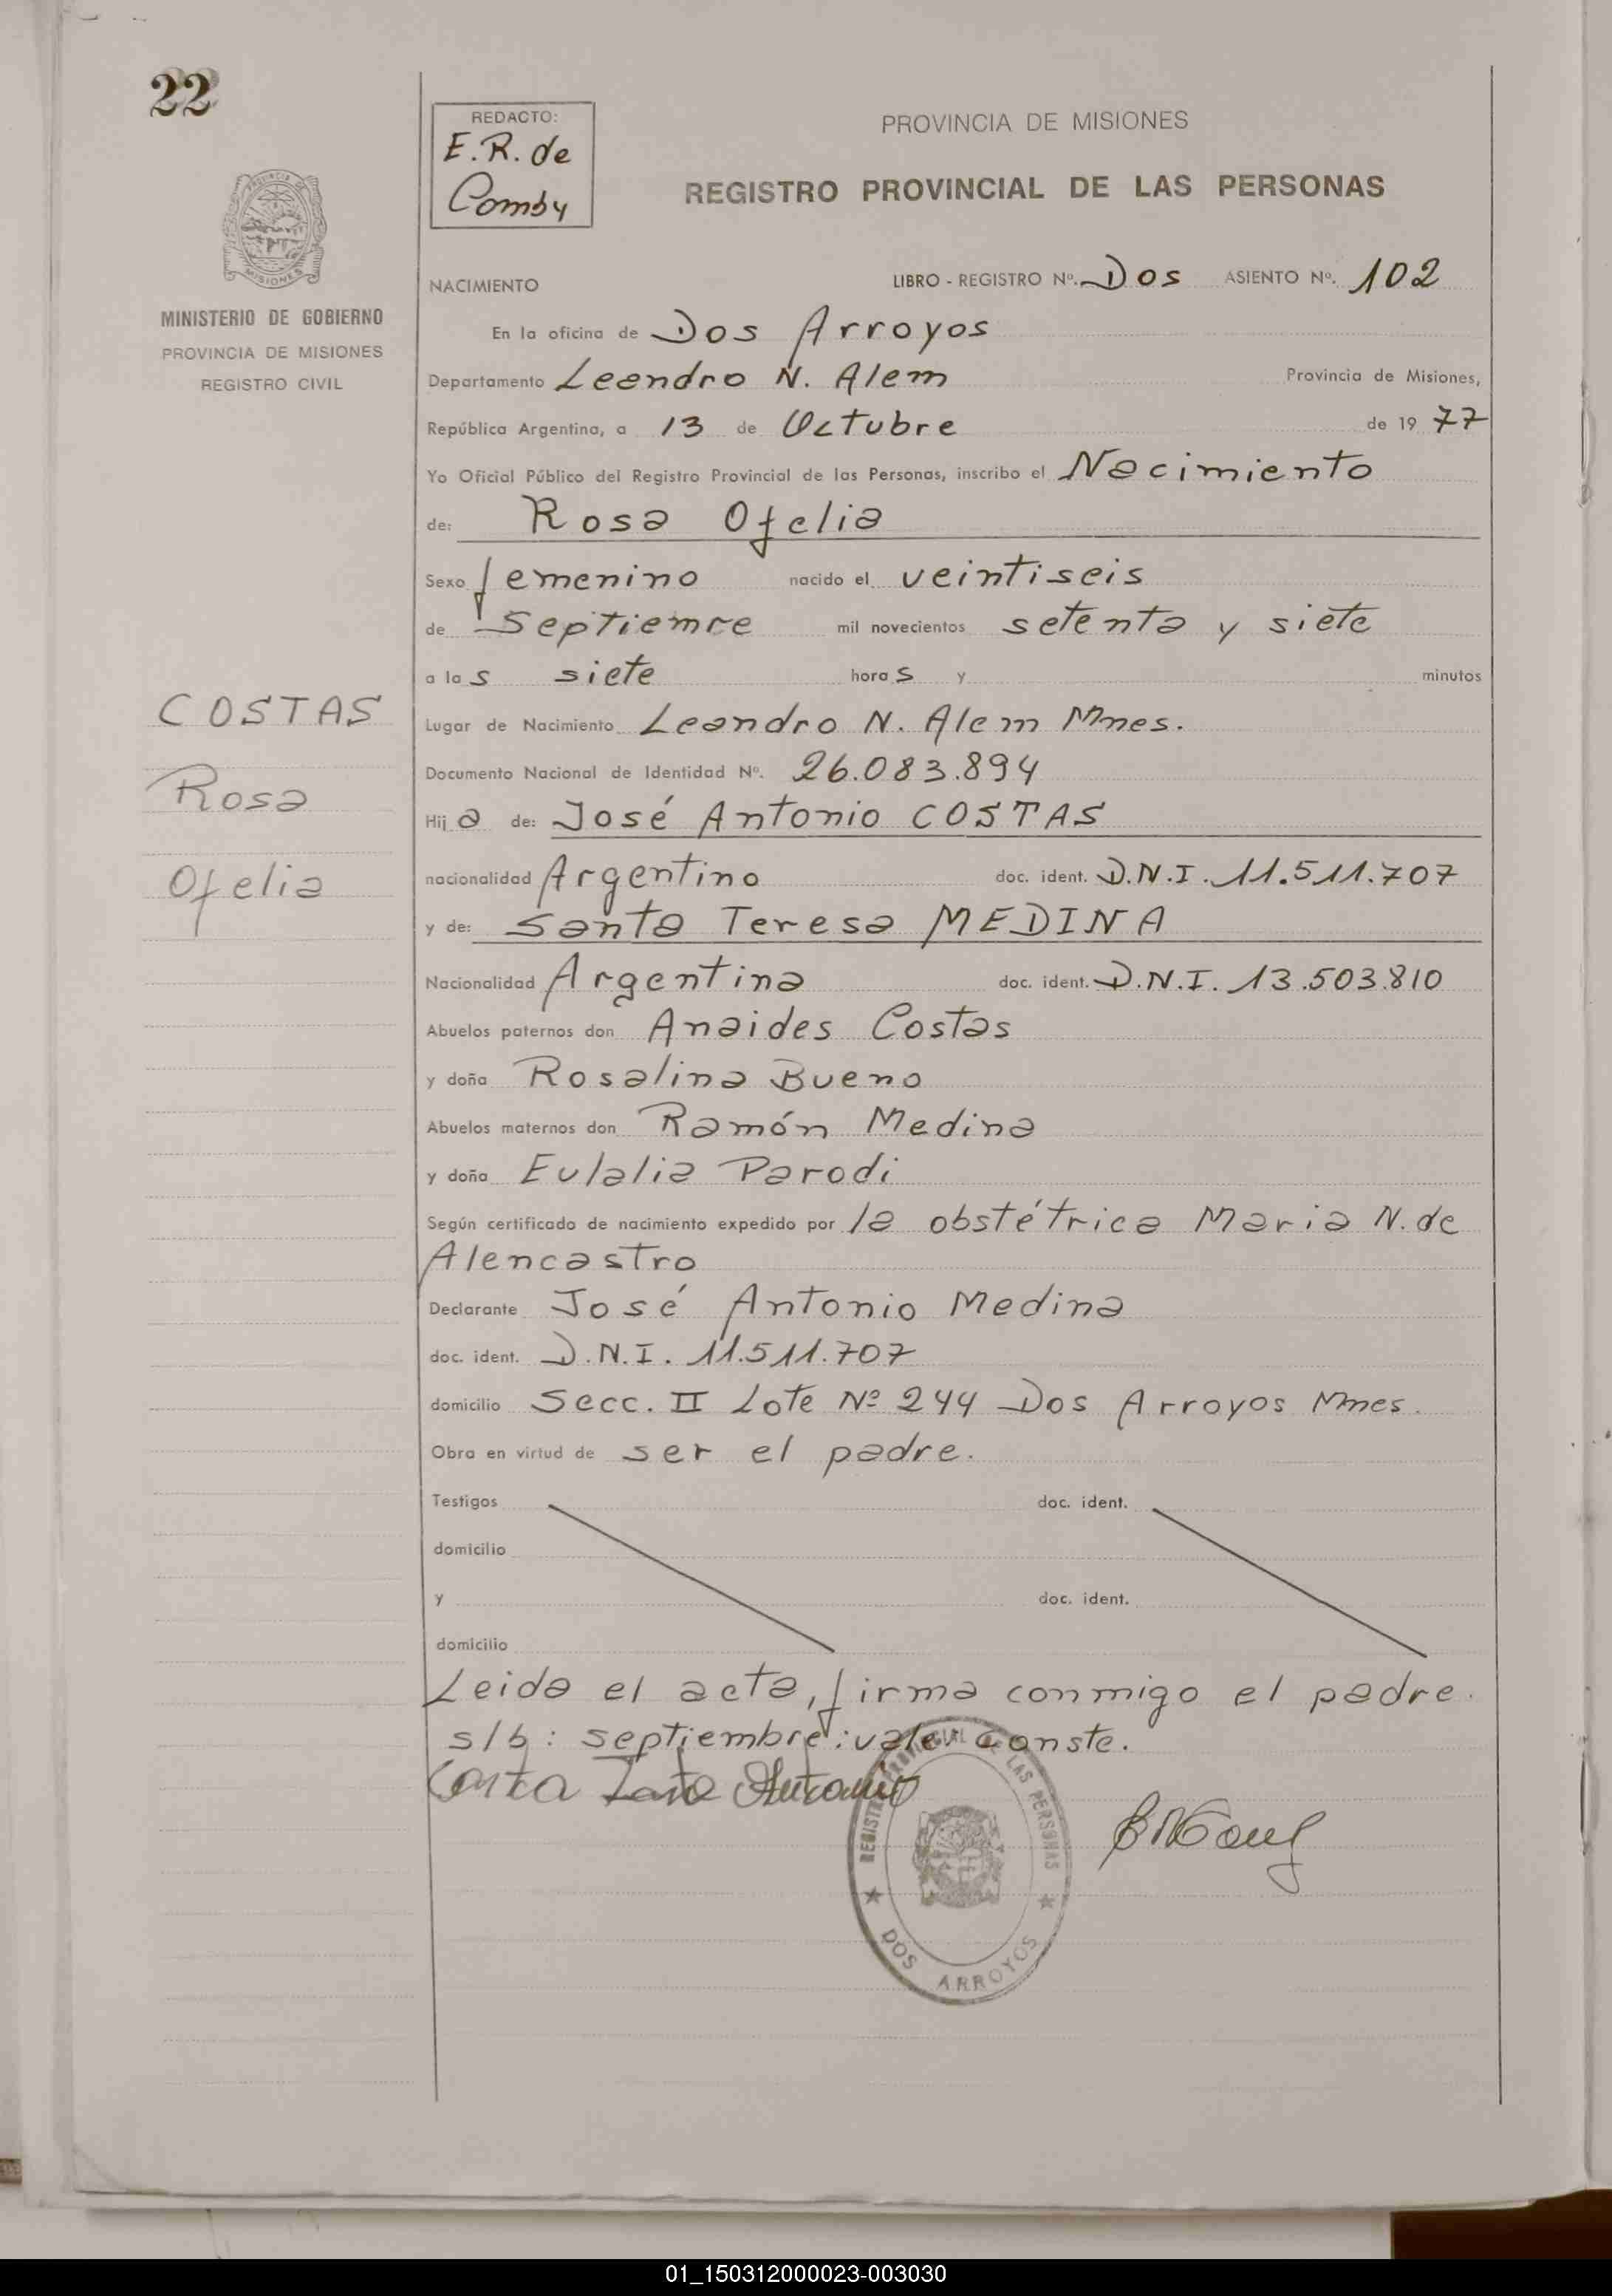 22
REDACTO:
E.R. de
Comby
PROVINCIA DE MISIONES
REGISTRO PROVINCIAL DE LAS PERSONAS
PROVINCIA DE
MISIONES
MINISTERIO DE GOBIERNO
PROVINCIA DE MISIONES
REGISTRO CIVIL
COSTAS
Rosa
Ofelia
NACIMIENTO LIBRO - REGISTRO Nº. Dos ASIENTO Nº. 102
En la oficina de Dos Arroyos
Departamento Leandro N. Alem Provincia de Misiones,
República Argentina, a 13 de Octubre de 19 77
Yo Oficial Público del Registro Provincial de las Personas, inscribo el Nacimiento
de: Rosa Ofelia
Sexo femenino nacido el veintiseis
de Septiemre mil novecientos setenta y siete
a las siete horas y minutos
Lugar de Nacimiento Leandro N. Alem Mnes.
Documento Nacional de Identidad Nº. 26.083.894
Hija de: José Antonio COSTAS
nacionalidad Argentino doc. ident. D.N.I. 11.511.707
y de: Santa Teresa MEDINA
Nacionalidad Argentina doc. ident. D.N.I. 13.503.810
Abuelos paternos don Anaides Costas
y doña Rosalina Bueno
Abuelos maternos don Ramón Medina
y doña Eulalia Parodi
Según certificado de nacimiento expedido por la obstétrica Maria N. de
Alencastro
Declarante José Antonio Medina
doc. ident. D.N.I. 11.511.707
domicilio Secc. II Lote Nº 244 Dos Arroyos Mnes.
Obra en virtud de ser el padre.
Testigos doc. ident.
domicilio
y doc. ident.
domicilio
Leida el acta, firma conmigo el padre.
s/b: septiembre: vale conste.
Antonio
REGISTRO PROVINCIAL DE LAS PERSONAS
DOS ARROYOS
01_150312000023-003030